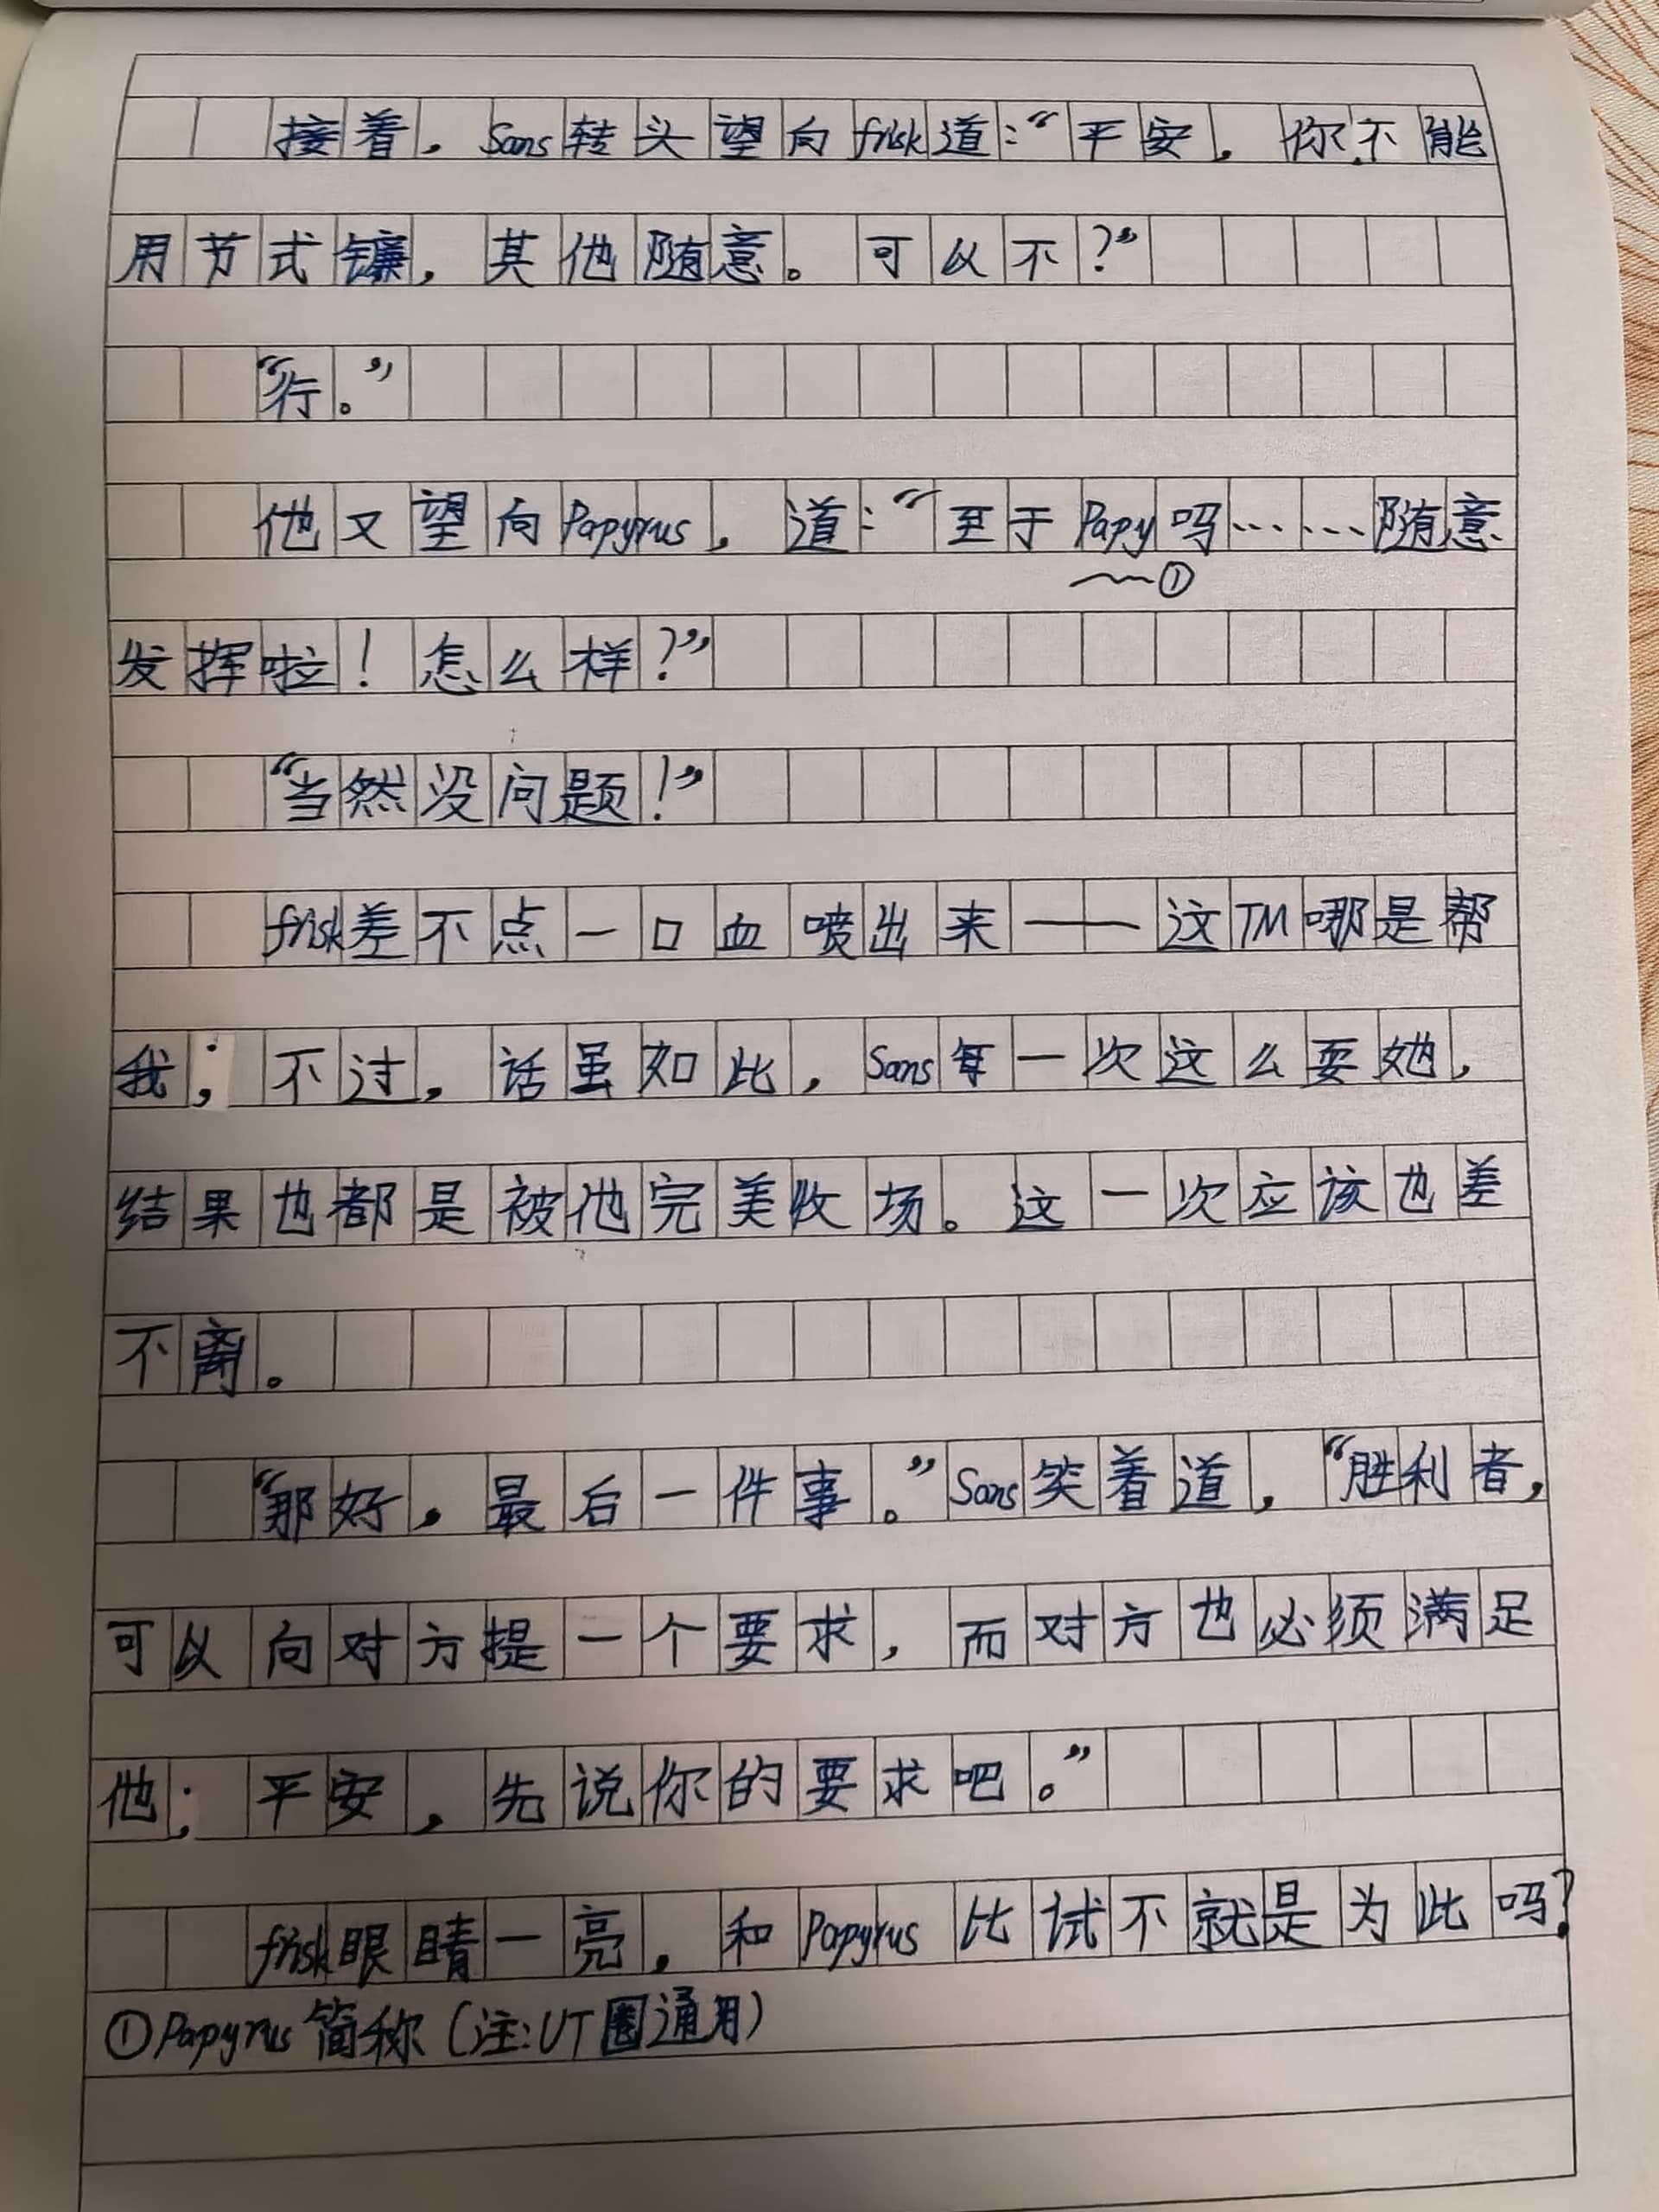 接着，Sans转头望向frisk道：“平安，你不能
用节式镰，其他随意。可以不？”
“行。”
他又望向Papyrus，道：“至于Papy吗……随意
①
发挥啦！怎么样？”
“当然没问题！”
frisk差不点一口血喷出来——这TM哪是帮
我；不过，话虽如此，Sans每一次这么耍她，
结果也都是被他完美收场。这一次应该也差
不离。
“那好，最后一件事。”Sans笑着道，“胜利者，
可以向对方提一个要求，而对方也必须满足
他；平安，先说你的要求吧。”
frisk眼睛一亮，和Papyrus比试不就是为此吗？
①Papyrus简称（注：UT圈通用）